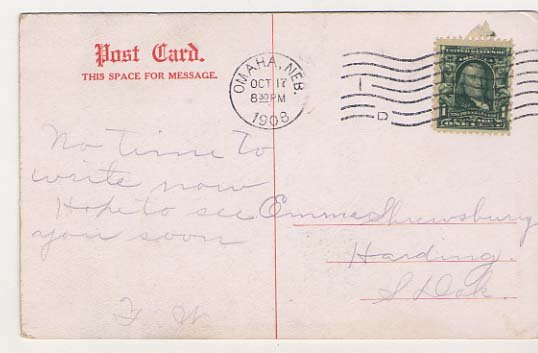 Post Card.
THIS SPACE FOR MESSAGE.
OMAHA, NEB.
OCT 17
8 30 PM
1908
D
No time to
write now
Hope to see
you soon
F W
Emma Shrewsbury
Harding.
S Dak.